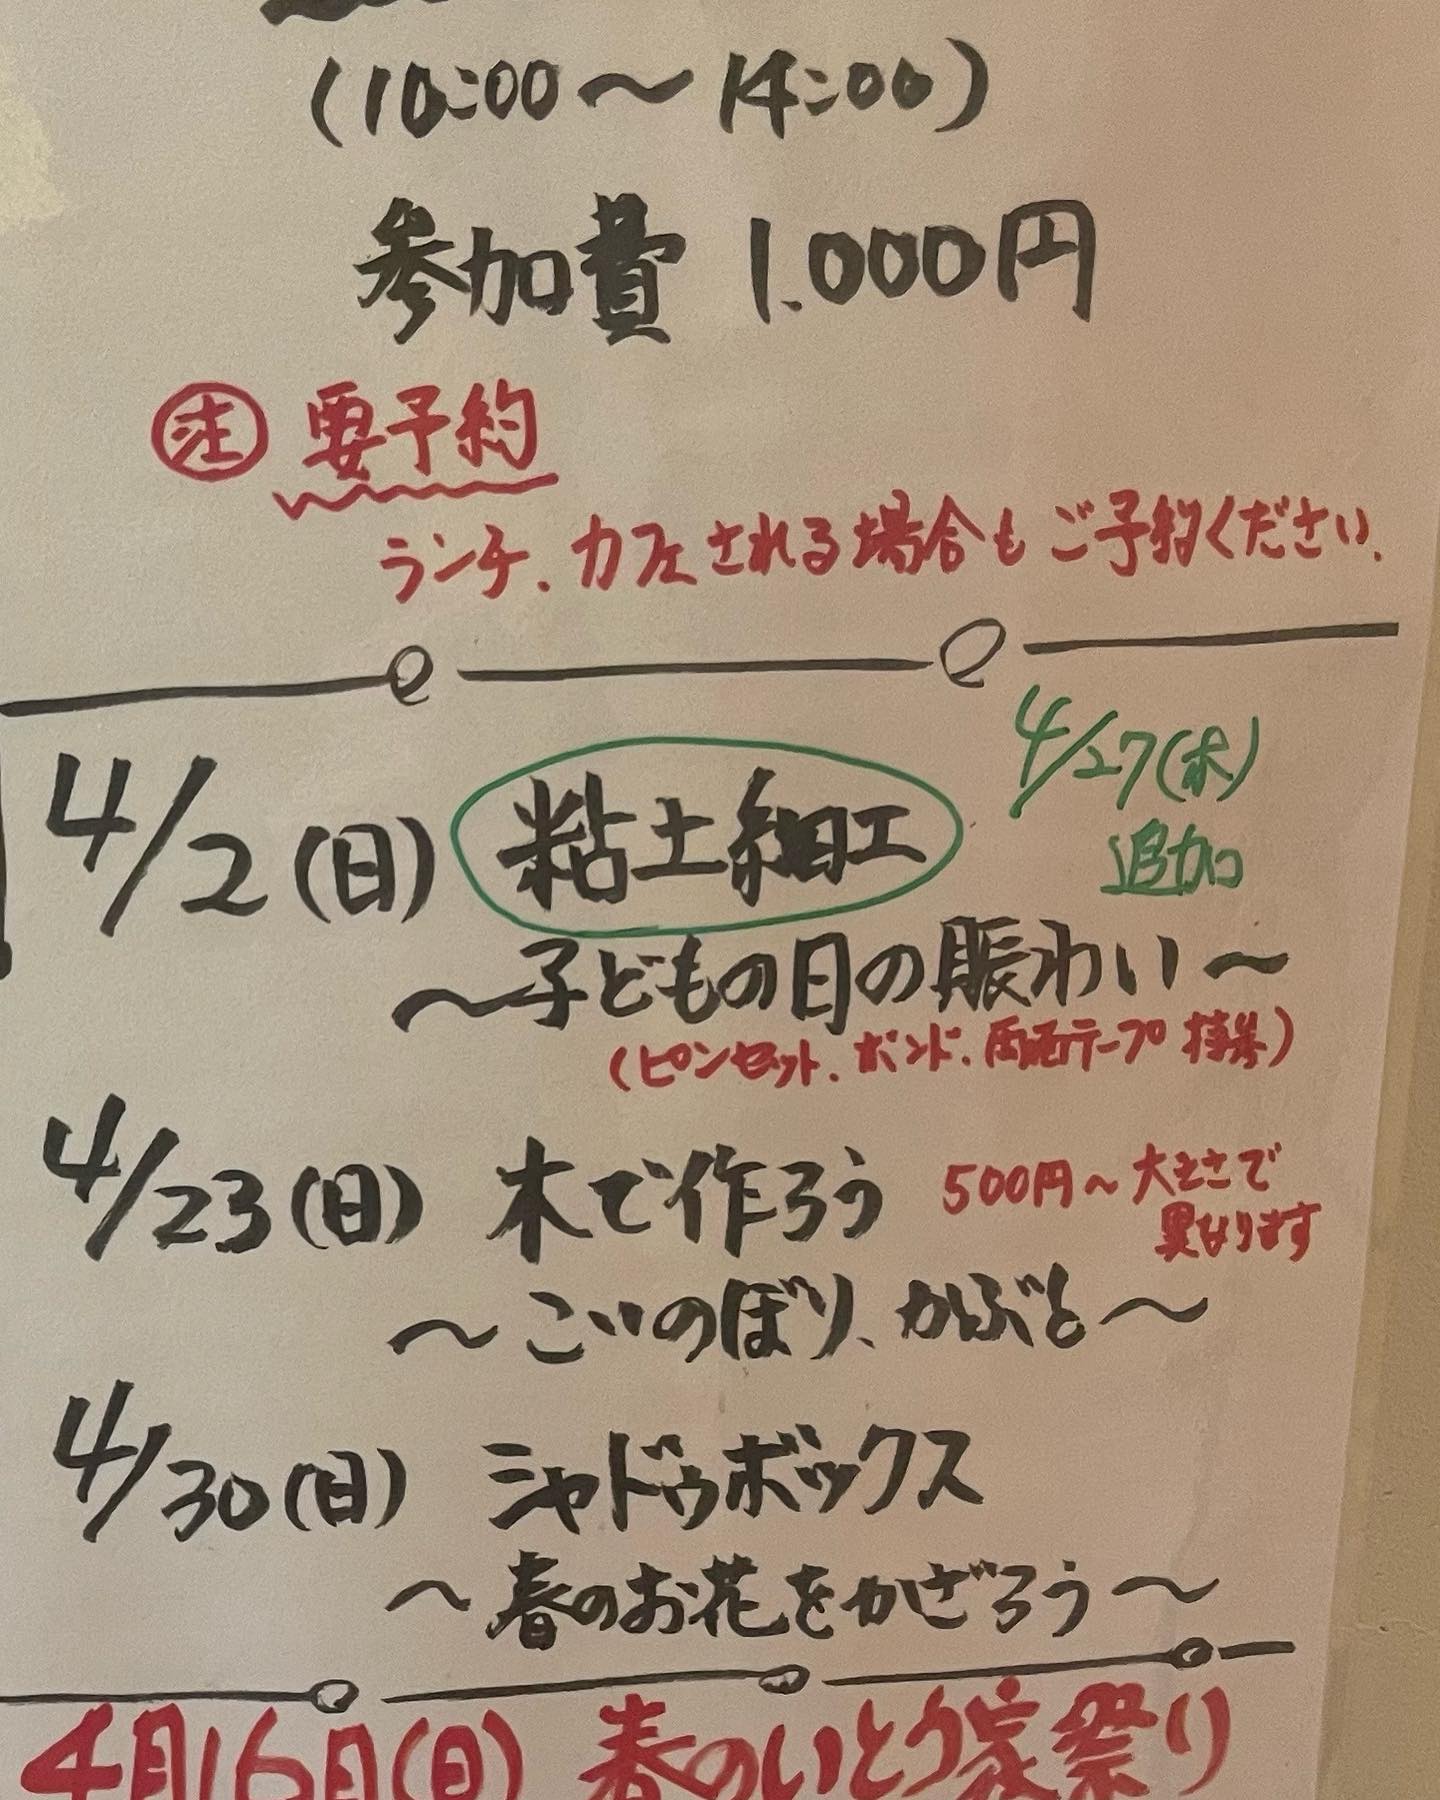 (10:00～14:00)
参加費 1.000円
注 要予約
ランチ、カフェされる場合もご予約ください.
4/2(日) 粘土細工
4/27(木)
追加
～子どもの日の賑わい～
(ピンセット、ボンド、両面テープ持参)
4/23(日) 木で作ろう 500円～大きさで
異なります
～こいのぼり、かぶと～
4/30(日) シャドゥボックス
～春のお花をかざろう～
4月16日(日) 春のいとう家祭り